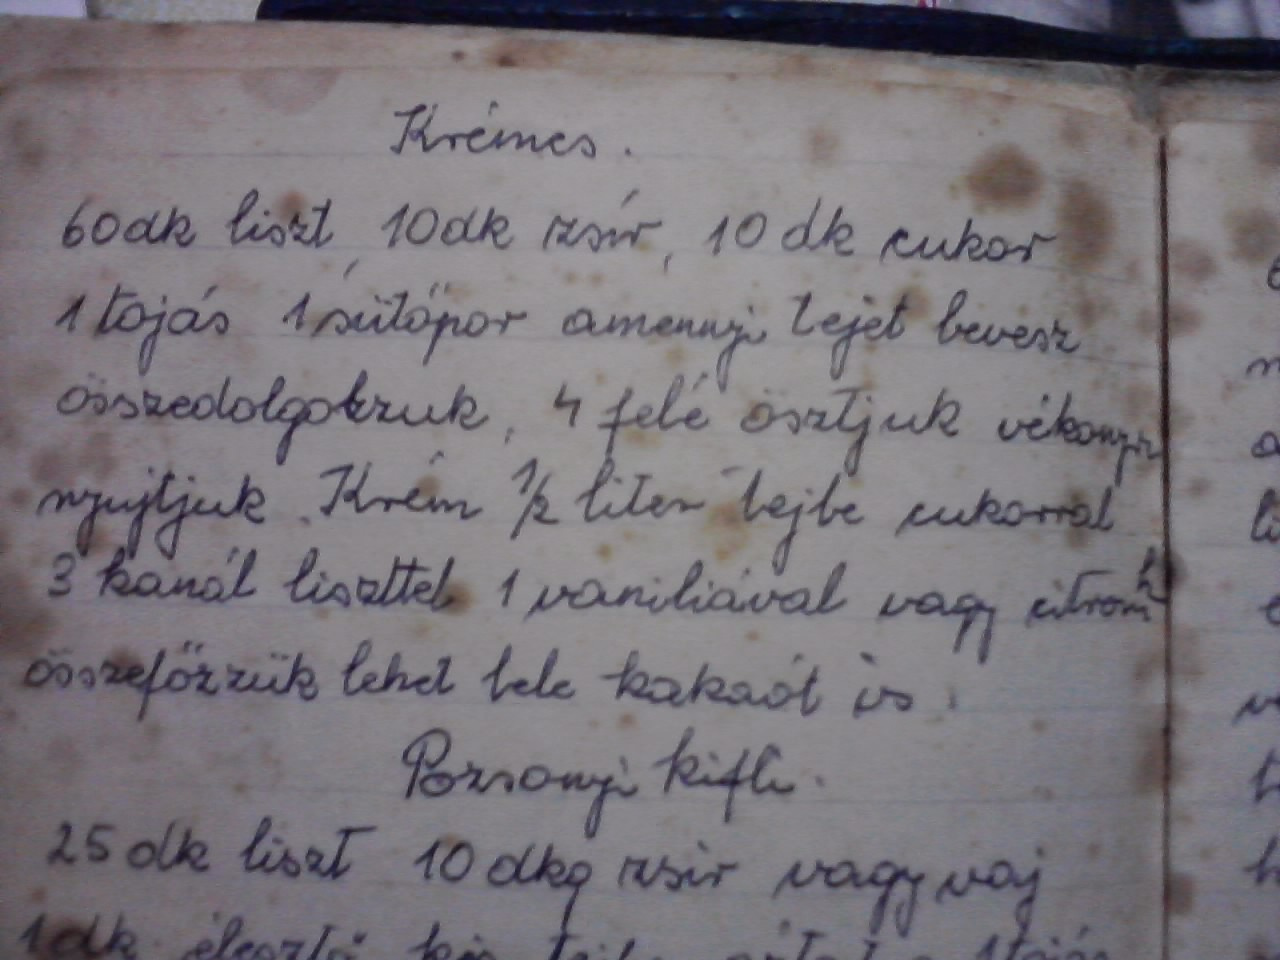 Krémes.
60dk liszt, 10dk zsír, 10dk cukor
1 tojás 1 sütőpor amennyi tejet bevesz
összedolgozzuk, 4 felé osztjuk vékonyra
nyujtjuk. Krém 1/2 liter tejbe cukorral
3 kanál liszttel 1 vaniliával vagy citrom
összefőzzük lehet bele kakaót is.
Pozsonyi kifli.
25 dk liszt 10 dkg zsír vagy vaj
1dk élesztő kis